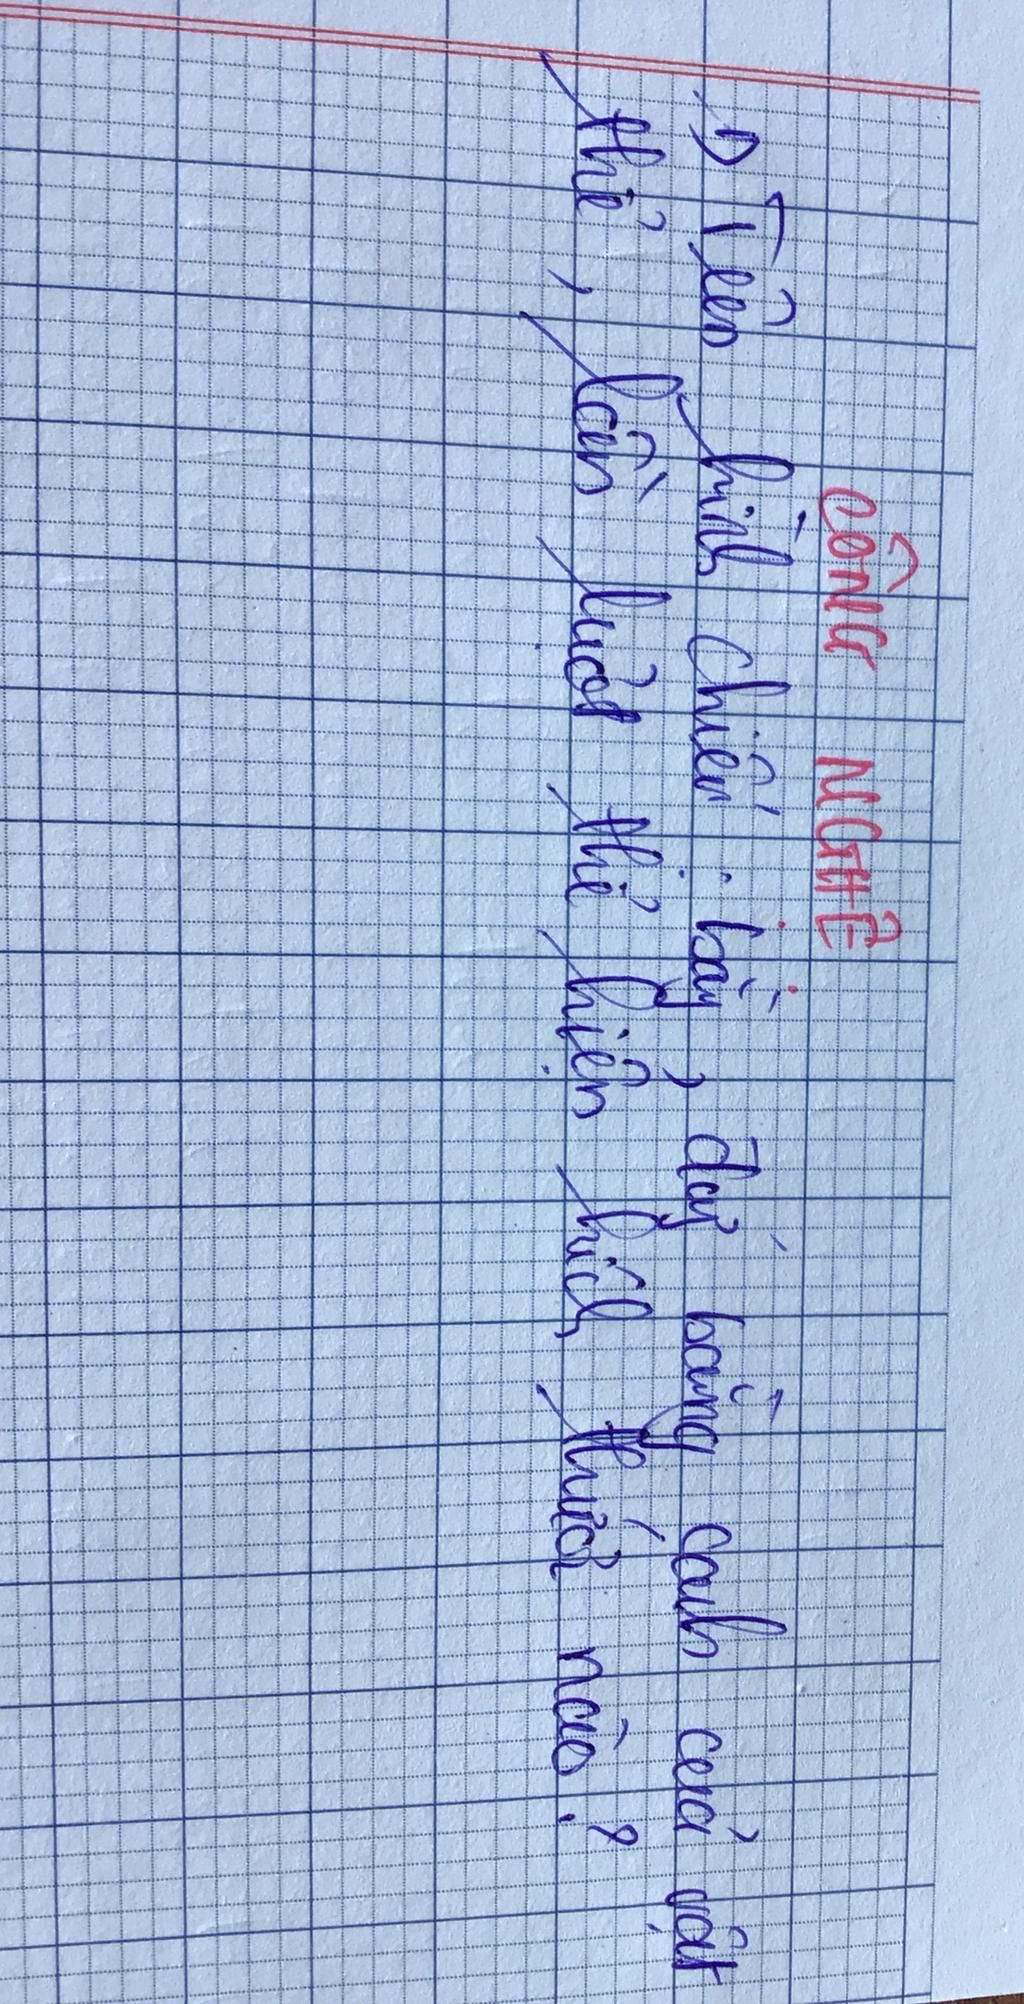 CÔNG NGHỆ
1) Tên hình chiếu : bằng, đáy bằng cạnh của vật
thể, lần lượt thể hiện kích thước nào?